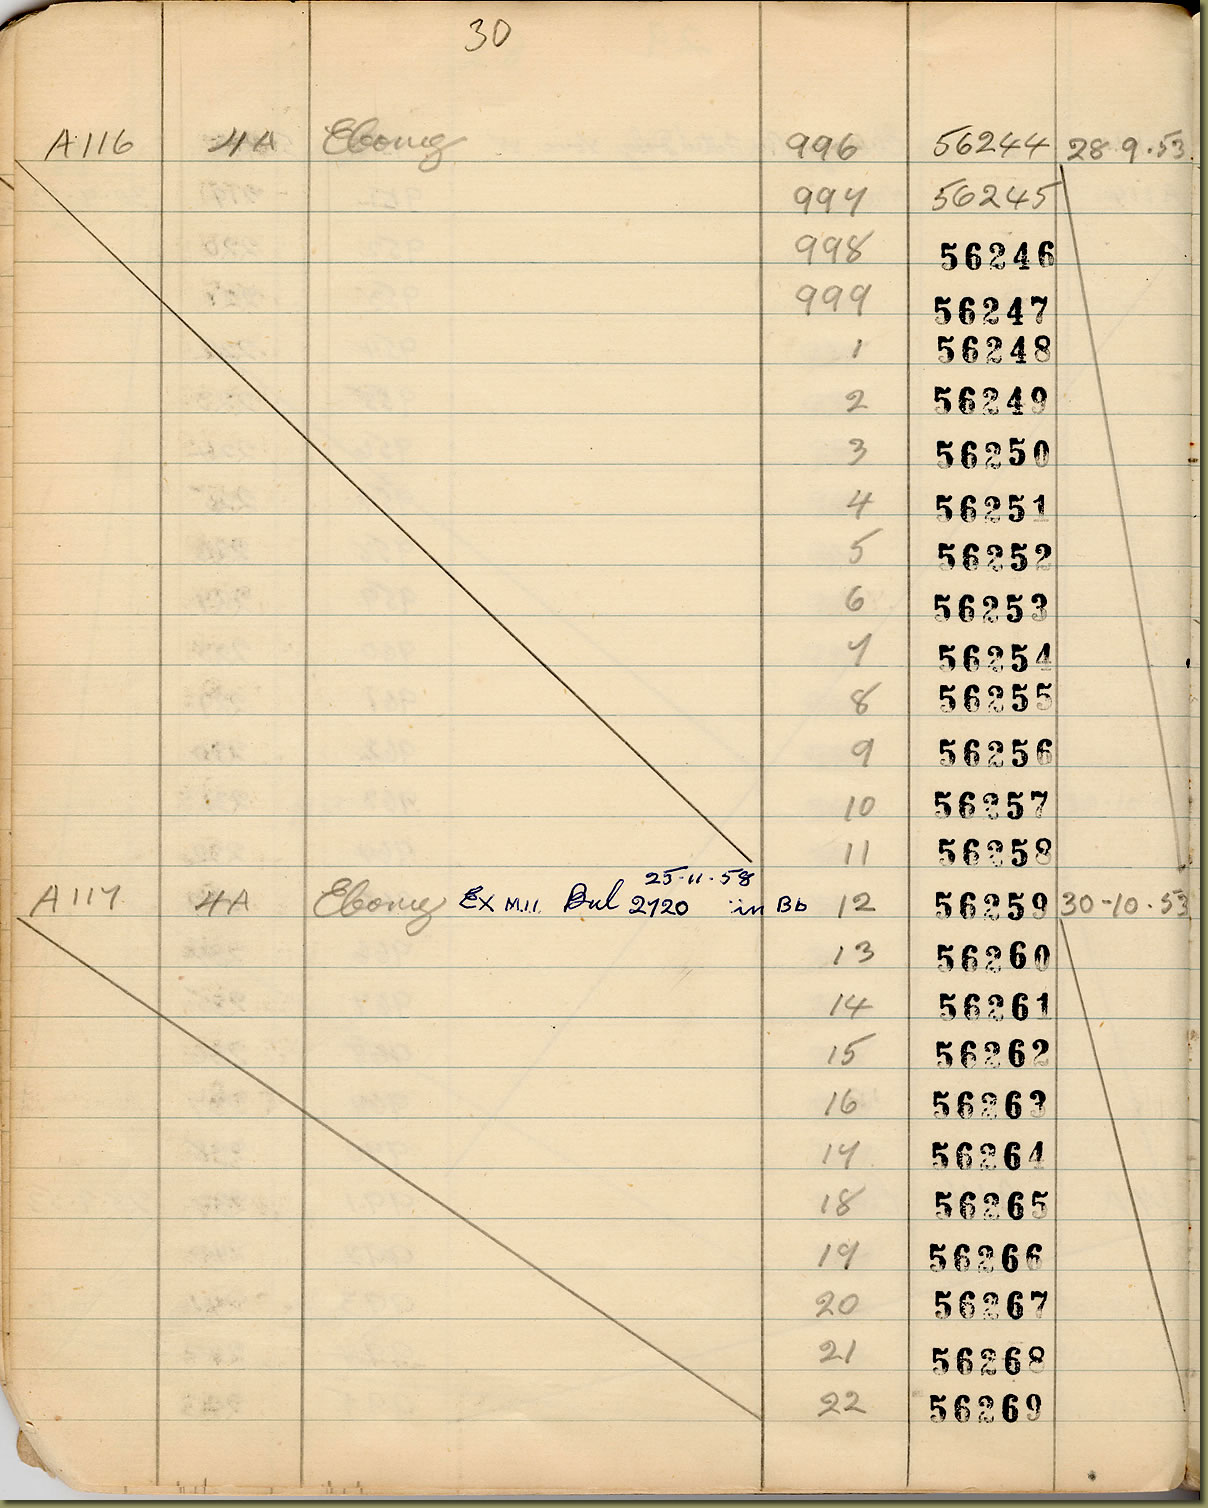 30
A116 4A Ebony 996 56244 28 9.53
997 56245
998 56246
999 56247
1 56248
2 56249
3 56250
4 56251
5 56252
6 56253
7 56254
8 56255
9 56256
10 56257
11 56258
25·11·58
A117 4A Ebony Ex M.11. Bul 2720 in Bb 12 56259 30-10.53
13 56260
14 56261
15 56262
16 56263
17 56264
18 56265
19 56266
20 56267
21 56268
22 56269